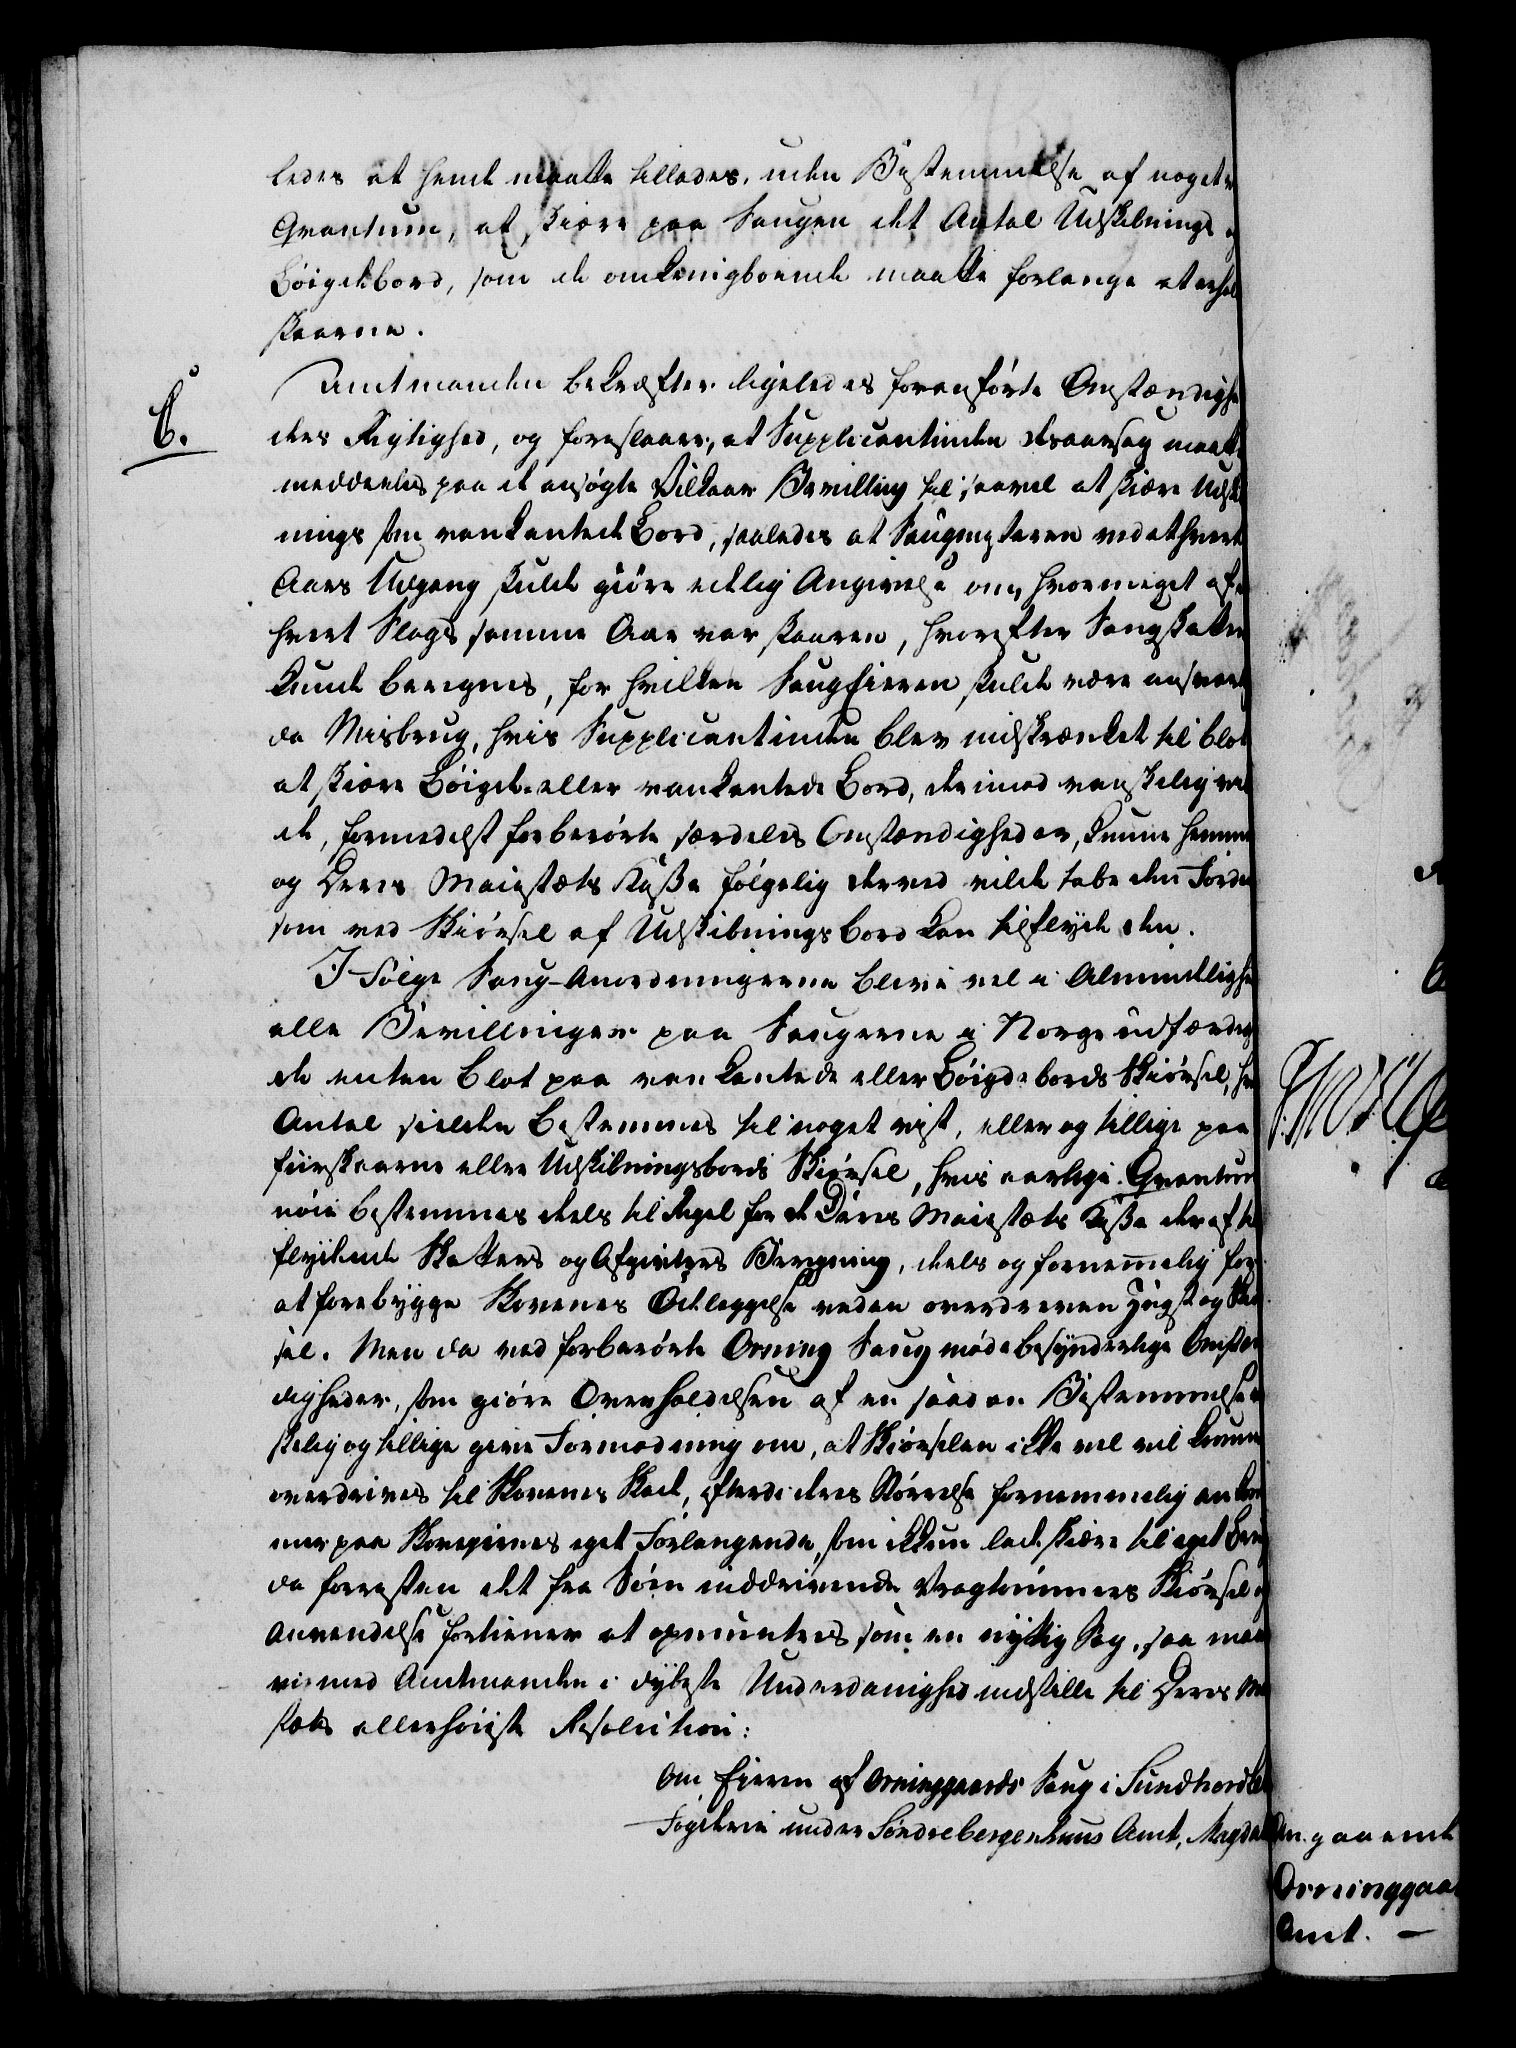 ledes at hende maatte tillades, uden Bestemmelse af noget
Qvantum, at skiære paa Saugen det Antal Udskibnings
Bøigdebord, som de omkringboende maatte forlange at erhol
skaarne.
C.
Amtmanden bekræfter ligeledes foranførte Omstændighe
ders Rigtighed, og foreslaaer, at Supplicantinden desaarsag maatte
meddeeles paa de ansøgte Vilkaar Bevilling til saavel at skiære Udski
nings som vankantede Bord, saaledes at Saugmesteren ved ethvert
Aars Udgang skulde giøre edelig Angivelse om, hvormeget af
hvert Slags samme Aar var skaaren, hvorefter Saugskatten
kunde beregnes, for hvilken Saugeieren skulde være ansvarl
da Misbrug, hvis Supplicantinden blev indskrænket til blot
at skiære Bøigde eller vankantede Bord, derimod vanskelig vil
de, formedelst forberørte særdeles Omstændigheder, kunne hemmes
og Deres Maiestæts Kasse følgelig derved vilde tabe den Førdel
som ved Skiørsel af Udskibningsbord kan tilflyde den.
I Følge Saug-Anordningerne blive vel i Almindelighe
alle Bevillinger paa Saugerne i Norge udfærdige
de enten blot paa vankantede eller Bøigdebords Skiørsel, hv
Antal sielden bestemmes til noget vist, eller og tillige paa
fiirskaarne eller Udskibningsbords Skiørsel, hvis aarlige Qvantum
nøie bestemmes deels til Regel for de Deres Maiestæts Kasse deraf til
flydende Skatters og Afgivters Beregning, deels og fornemelig for
at forebygge Skovenes Ødelæggelse ved en overdreven Hugst og Skiør
sel. Men da ved forberørte Orning Saug møde besynderlige Omstæn
digheder, som giøre Overholdelsen af en saadan Bestemmelse
skelig og tillige give Formodning om, at Skiørselen ikke vel vil kunne
overdrives til Skovenes Skade, efterdi dens Størrelse fornemmelig ankom
mer paa Skoveiernes eget Forlangende, som ikkun lade skiære til eget Brug
da foresten det fra Søen inddrivende Vragtømmers Skiørsel og
Anvendelse fortiener at opmuntres som en nyttig Sag, saa maa
vi med Amtmanden i dybeste Underdanighed indstille til Deres Mai
stæts allerhøieste Resolution:
Om Eieren af Orninggaards Saug i Sundhordle
Fogderie under Søndrebergenhuus Amt, Magda
Angaaende
Orninggaa
Amt. —